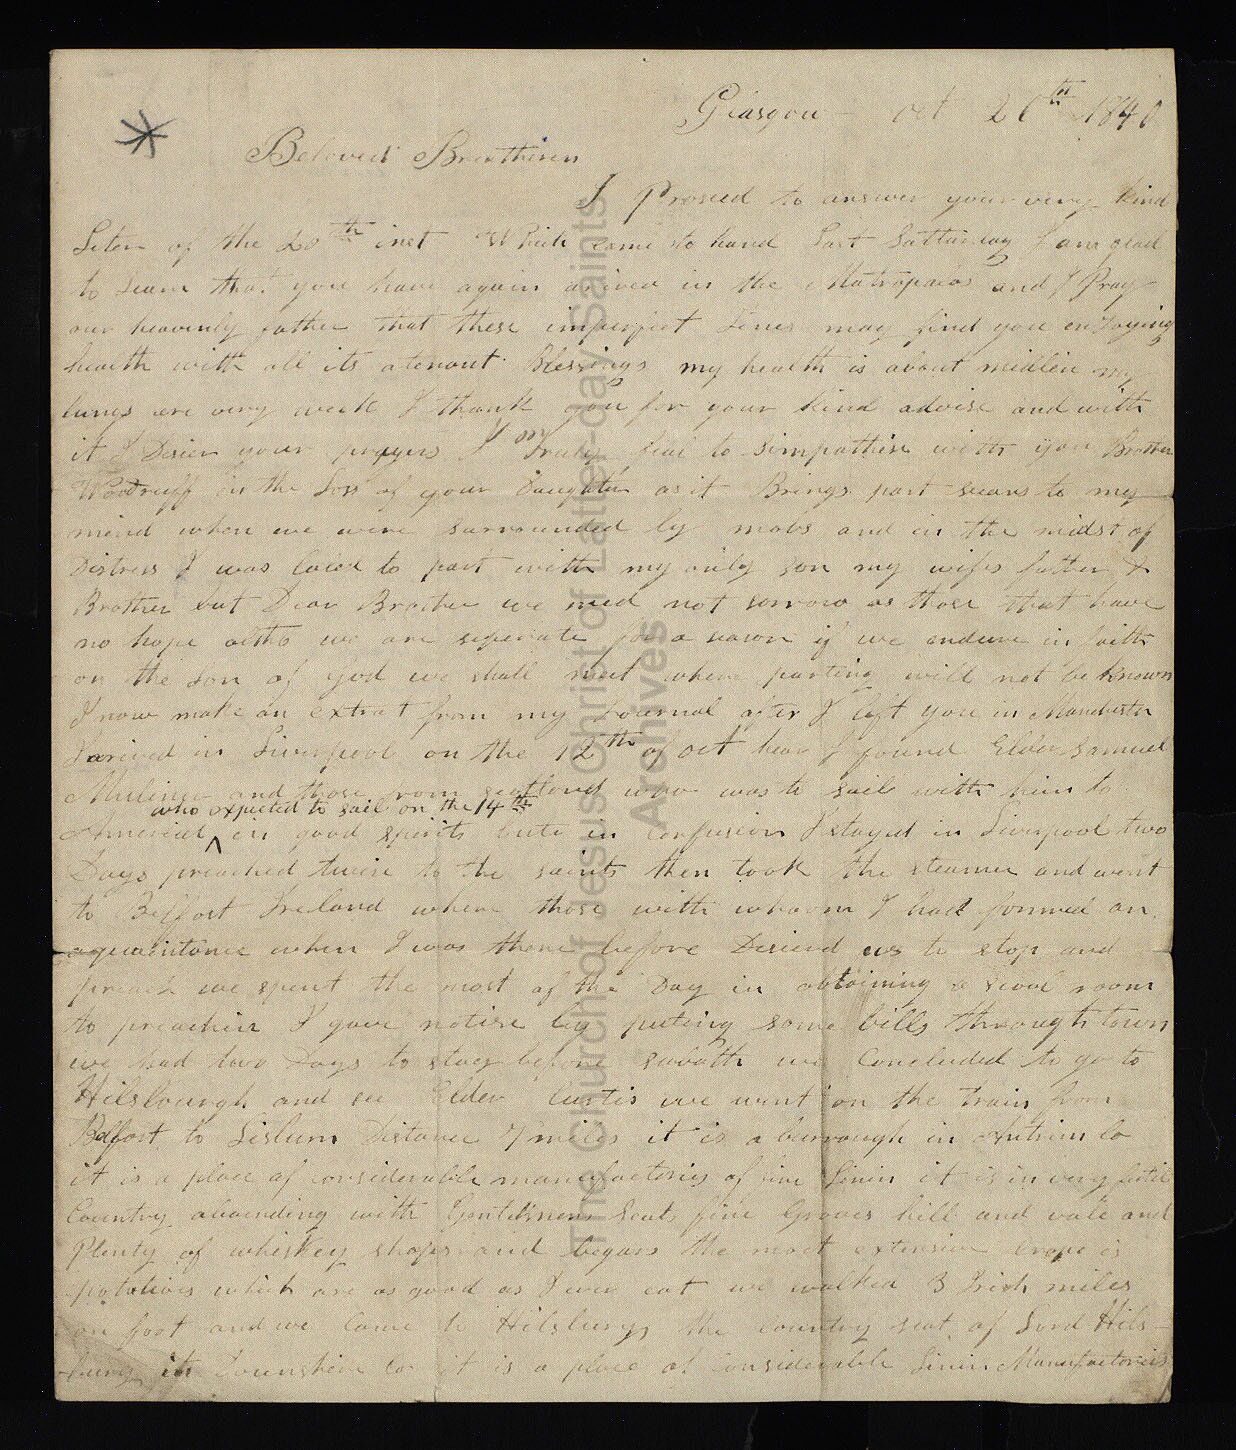 Glasgow - oct 26th 1840
Beloved Breatheren
I Proseed to answer your very kind
Leter of the 20th inst Which came to hand Last Satturday I am glad
to learn that you have again arived in the Matropalas and I Pray
our heavenly father that these imperfect Lines may find you enJoying
health with all its atendant Blessings my health is about midlin my
lungs are very weak I thank you for your kind advise and with
it I Desier your prayers I Truly feal to simpathise with you Brother
Woodruff in the Loss of your Daughter as it Brings past seans to my
mind when we were surrounded by mobs and in the midst of
Distress I was Caled to part with my only son my wifes father &
Brother but Dear Brother we need not sorrow as those that have
no hope altho we are seperate for a season if we endure in faith
on the Son of God we shall meet where parting will not be known
I now make an extract from my Journal after I left you in Manchester
I arived in Liverpool on the 12th of oct hear I found Elder Samuel
Muliner and those from scotland who was to sail with him to
who expected to sail on the 14th
America in good spirits but in Confusion I stayed in Liverpool two
Days preached twice to the saints then took the steamer and went
to Belfast Ireland where those with whoom I had formed an
aquaintance when I was there before Desierd us to stop and
preach we spent the most of the Day in obtaining a scool room
to preach in I gave notise by puting some bills through town
we had two Days to stay before sabath we Concluded to go to
Hilsbourgh and see Elder Curtis we went on the train from
Belfast to Lisburn Distance 7 miles it is a burrough in Antrim Co
it is a place of considerable manufactories of fine Linin it is in very fertil
Country abounding with Gentelmens Seats fine Groves hill and vale and
Plenty of whiskey shops and begars the most extensive crope is
potatoes which are as good as I ever eat we walked 3 Irish miles
on foot and we Came to Hilsbury the country seat of Lord Hils-
bury in Downshire Co it is a place of Considerable Linin Manufactories
The Church of Jesus Christ of Latter-day Saints
Archives